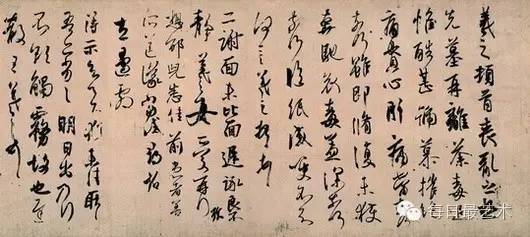 羲之頓首喪亂之極
先墓再離荼毒追
惟酷甚號慕摧絕
痛貫心肝痛當奈何
奈何雖即脩復未獲
奔馳哀毒益深奈何
奈何臨紙感哽不知
何言羲之頓首頓首
二謝面未比面遲詠良
靜羲之女愛再拜
想邰兒悉佳前患者善
所送議當試尋省
左邊劇
得示知足下猶未佳耿耿
吾亦劣劣明日出乃行
不欲觸霧故也遲
散王羲之頓首
每日最艺术